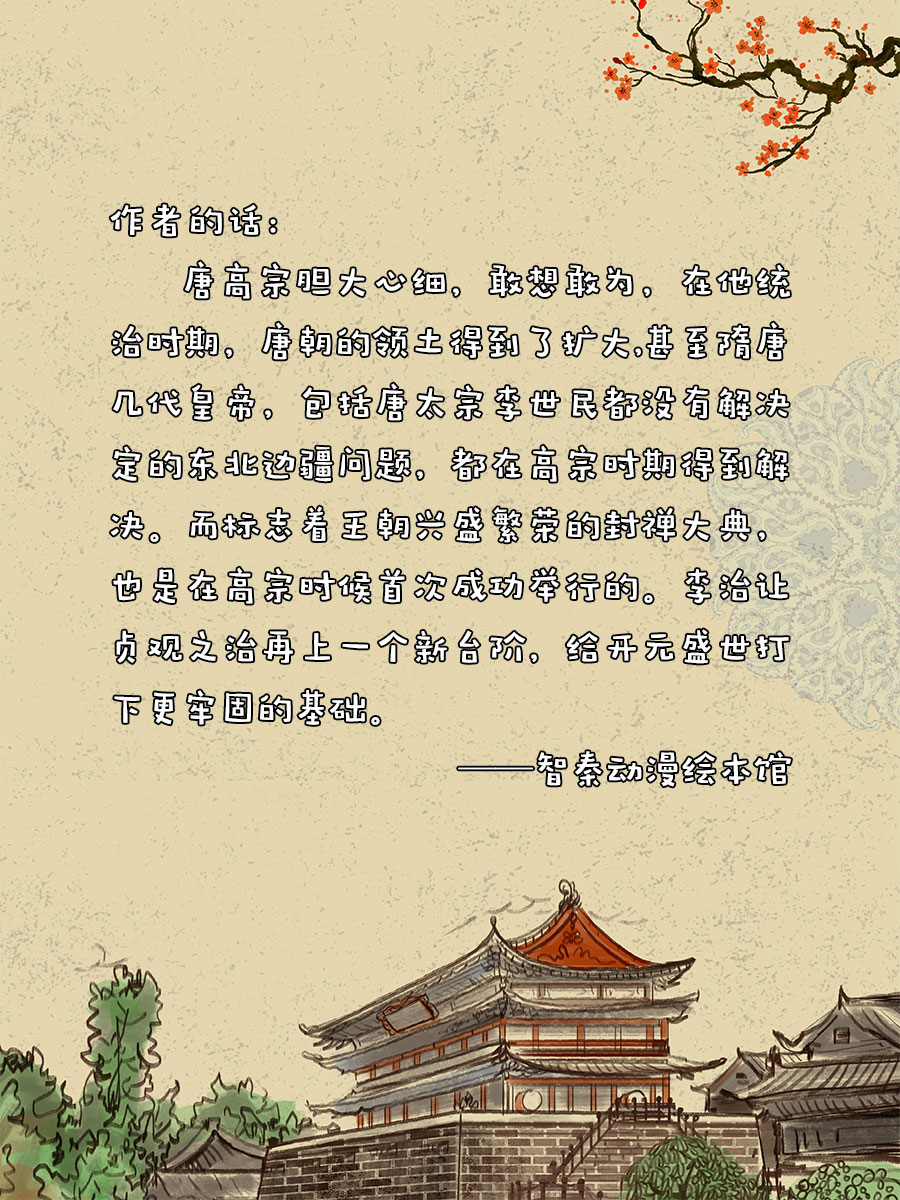 作者的话：
唐高宗胆大心细，敢想敢为，在他统
治时期，唐朝的领土得到了扩大,甚至隋唐
几代皇帝，包括唐太宗李世民都没有解决
定的东北边疆问题，都在高宗时期得到解
决。而标志着王朝兴盛繁荣的封禅大典，
也是在高宗时候首次成功举行的。李治让
贞观之治再上一个新台阶，给开元盛世打
下更牢固的基础。
——智秦动漫绘本馆